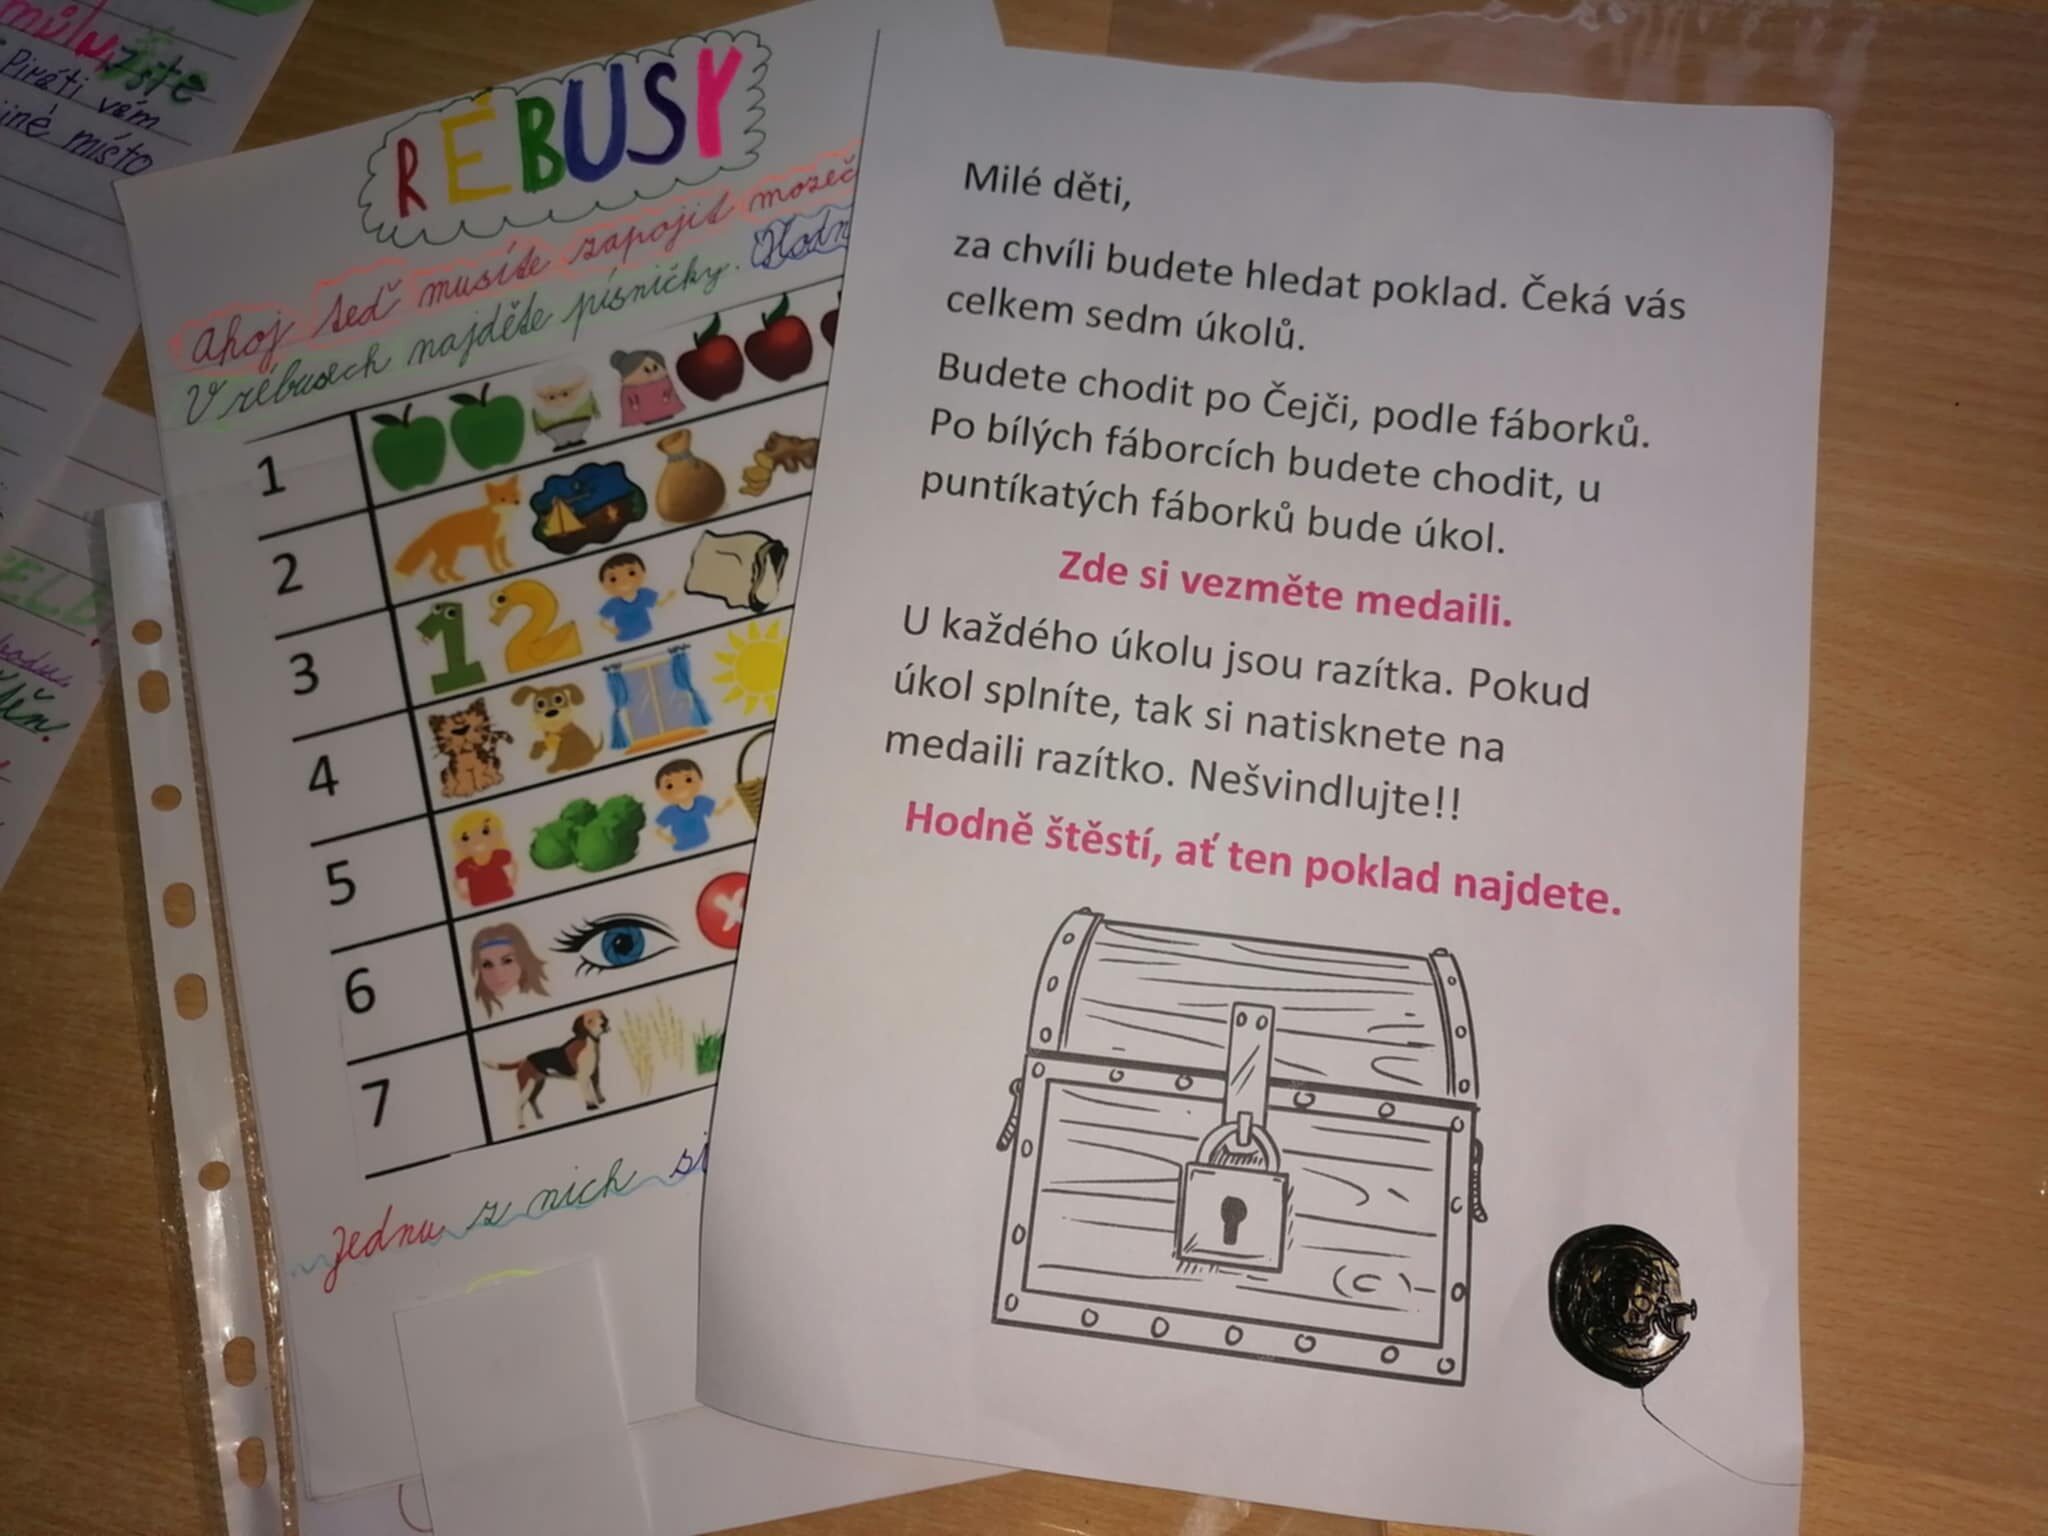 můžete
Piráti vám
jiné místo
RÉBUSY
Ahoj teď musíte zapojit mozeč
V rébusech najděte písničky. Hodn
1
2
3
4
5
6
7
jednu z nich
Milé děti,
za chvíli budete hledat poklad. Čeká vás
celkem sedm úkolů.
Budete chodit po Čejči, podle fáborků.
Po bílých fáborcích budete chodit, u
puntíkatých fáborků bude úkol.
Zde si vezměte medaili.
U každého úkolu jsou razítka. Pokud
úkol splníte, tak si natisknete na
medaili razítko. Nešvindlujte!!
Hodně štěstí, ať ten poklad najdete.